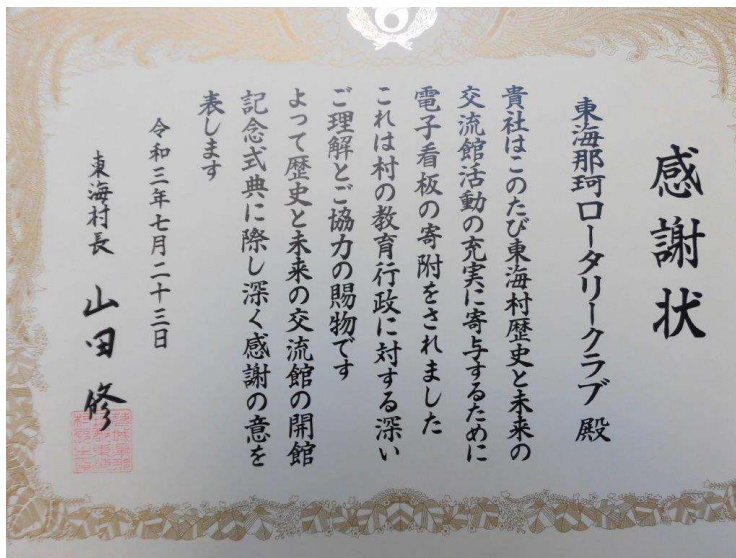 感謝状
東海那珂ロータリークラブ 殿
貴社はこのたび東海村歴史と未来の
交流館活動の充実に寄与するために
電子看板の寄附をされました
これは村の教育行政に対する深い
ご理解とご協力の賜物です
よって歴史と未来の交流館の開館
記念式典に際し深く感謝の意を
表します
令和三年七月二十三日
東海村長 山田修